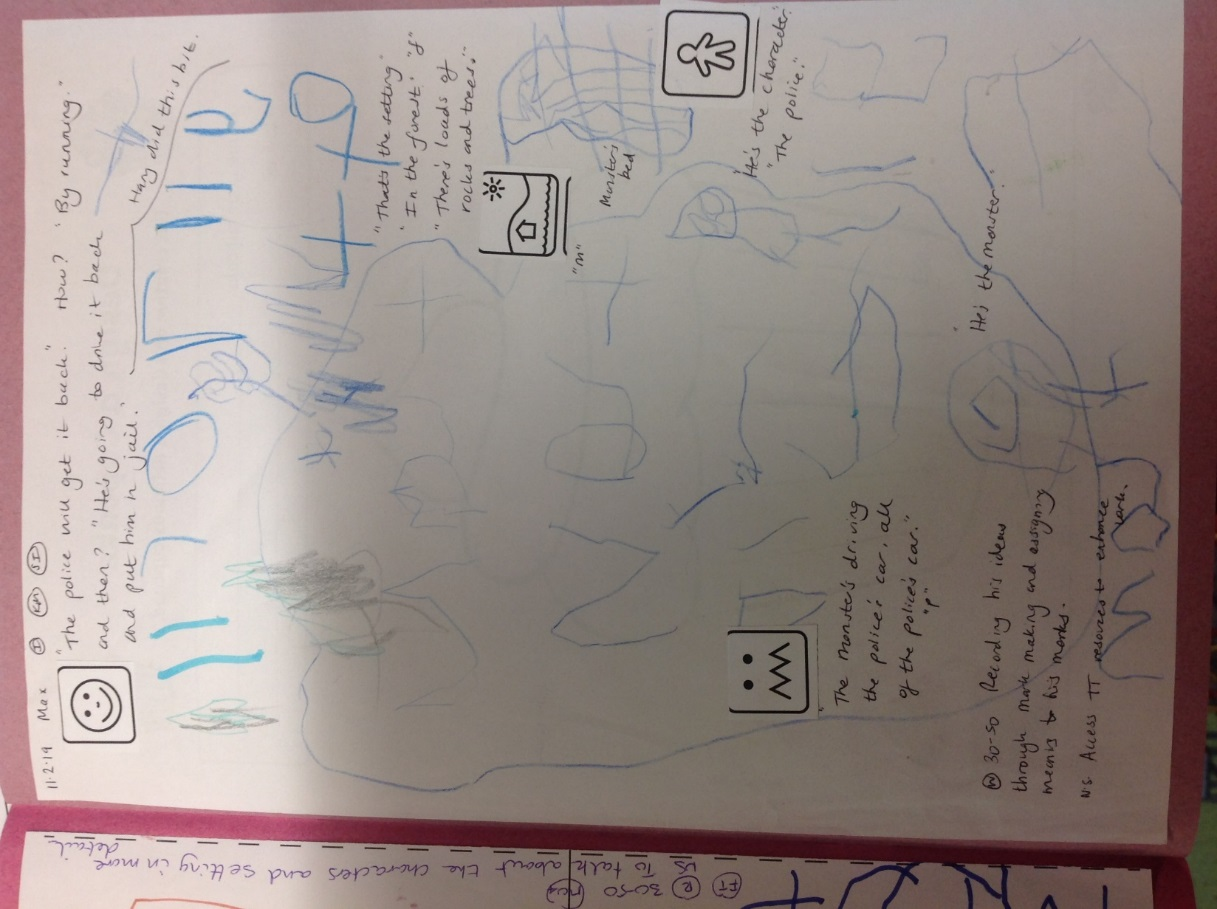 11.2.19 Max
"The police will get it back." How? "By running."
and then? "He's going to drive it back
and put him in jail."
Harry did this bit.
"That's the setting"
"In the forest" "f"
"There's loads of
rocks and trees."
"m"
Monster's
bed
"He's the character."
"The police."
"He's the monster."
"The monster's driving
the police's car, all
of the police's car."
"p"
W 30-50 Recording his ideas
through mark making and assigning
meaning to his marks.
N.S. Access TT resources to enhance
work.
FT R 30-50
NS To talk about the characters and setting in more
detail